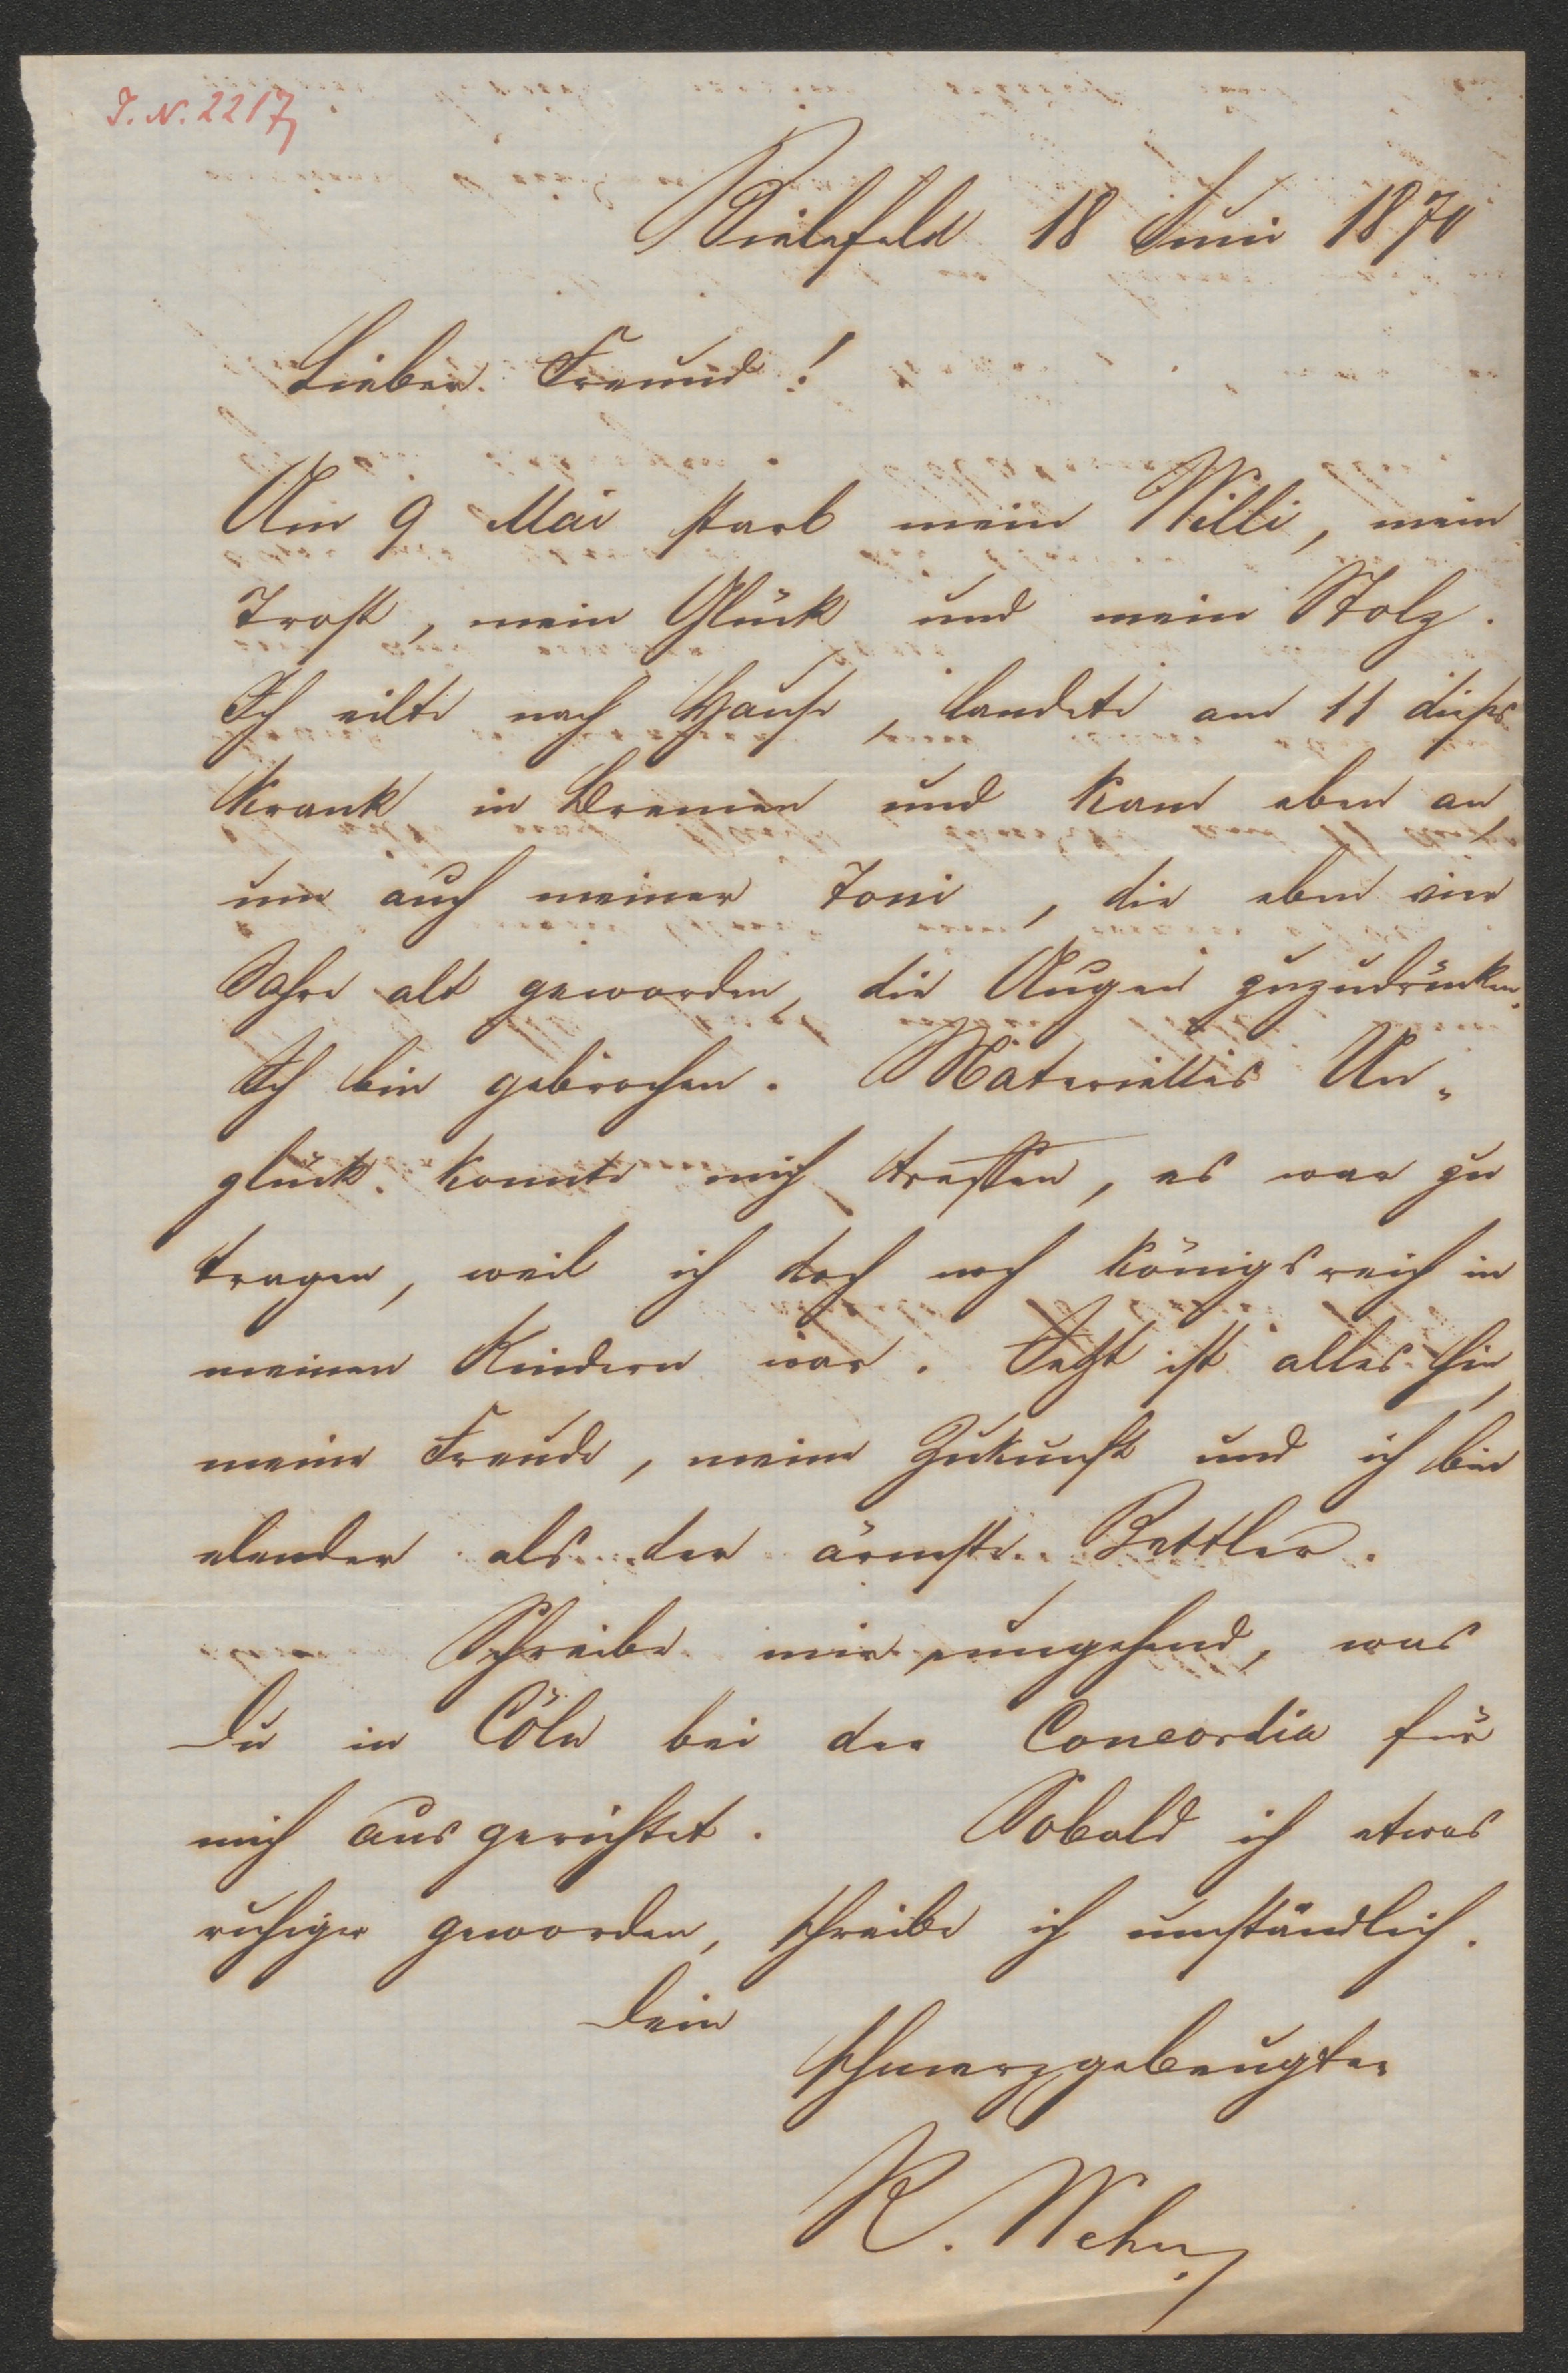 J. N. 2217
Bielefeld 18 Juni 1870
Lieber Freund!
Am 9 Mai starb mein Willi, mein
Trost, mein Glück und mein Stolz.
Ich eilte nach Hause, landete am 11 dieses
krank in Bremen und kam eben an,
um auch meiner Toni, die eben vier
Jahre alt geworden, die Augen zuzudrücken.
Ich bin gebrochen. Materielles Un-
glück konnte mich treffen, es war zu
tragen, weil ich doch noch königsreich in
meinen Kindern war. Jetzt ist alles hin,
meine Freude, meine Zukunft und ich bin
elender als der ärmste Bettler.
Schreibe mir umgehend, was
Du in Cöln bei der Concordia für
mich ausgerichtet. Sobald ich etwas
ruhiger geworden, schreibe ich umständlich.
Dein
schmerzgebeugter
R. Wehn